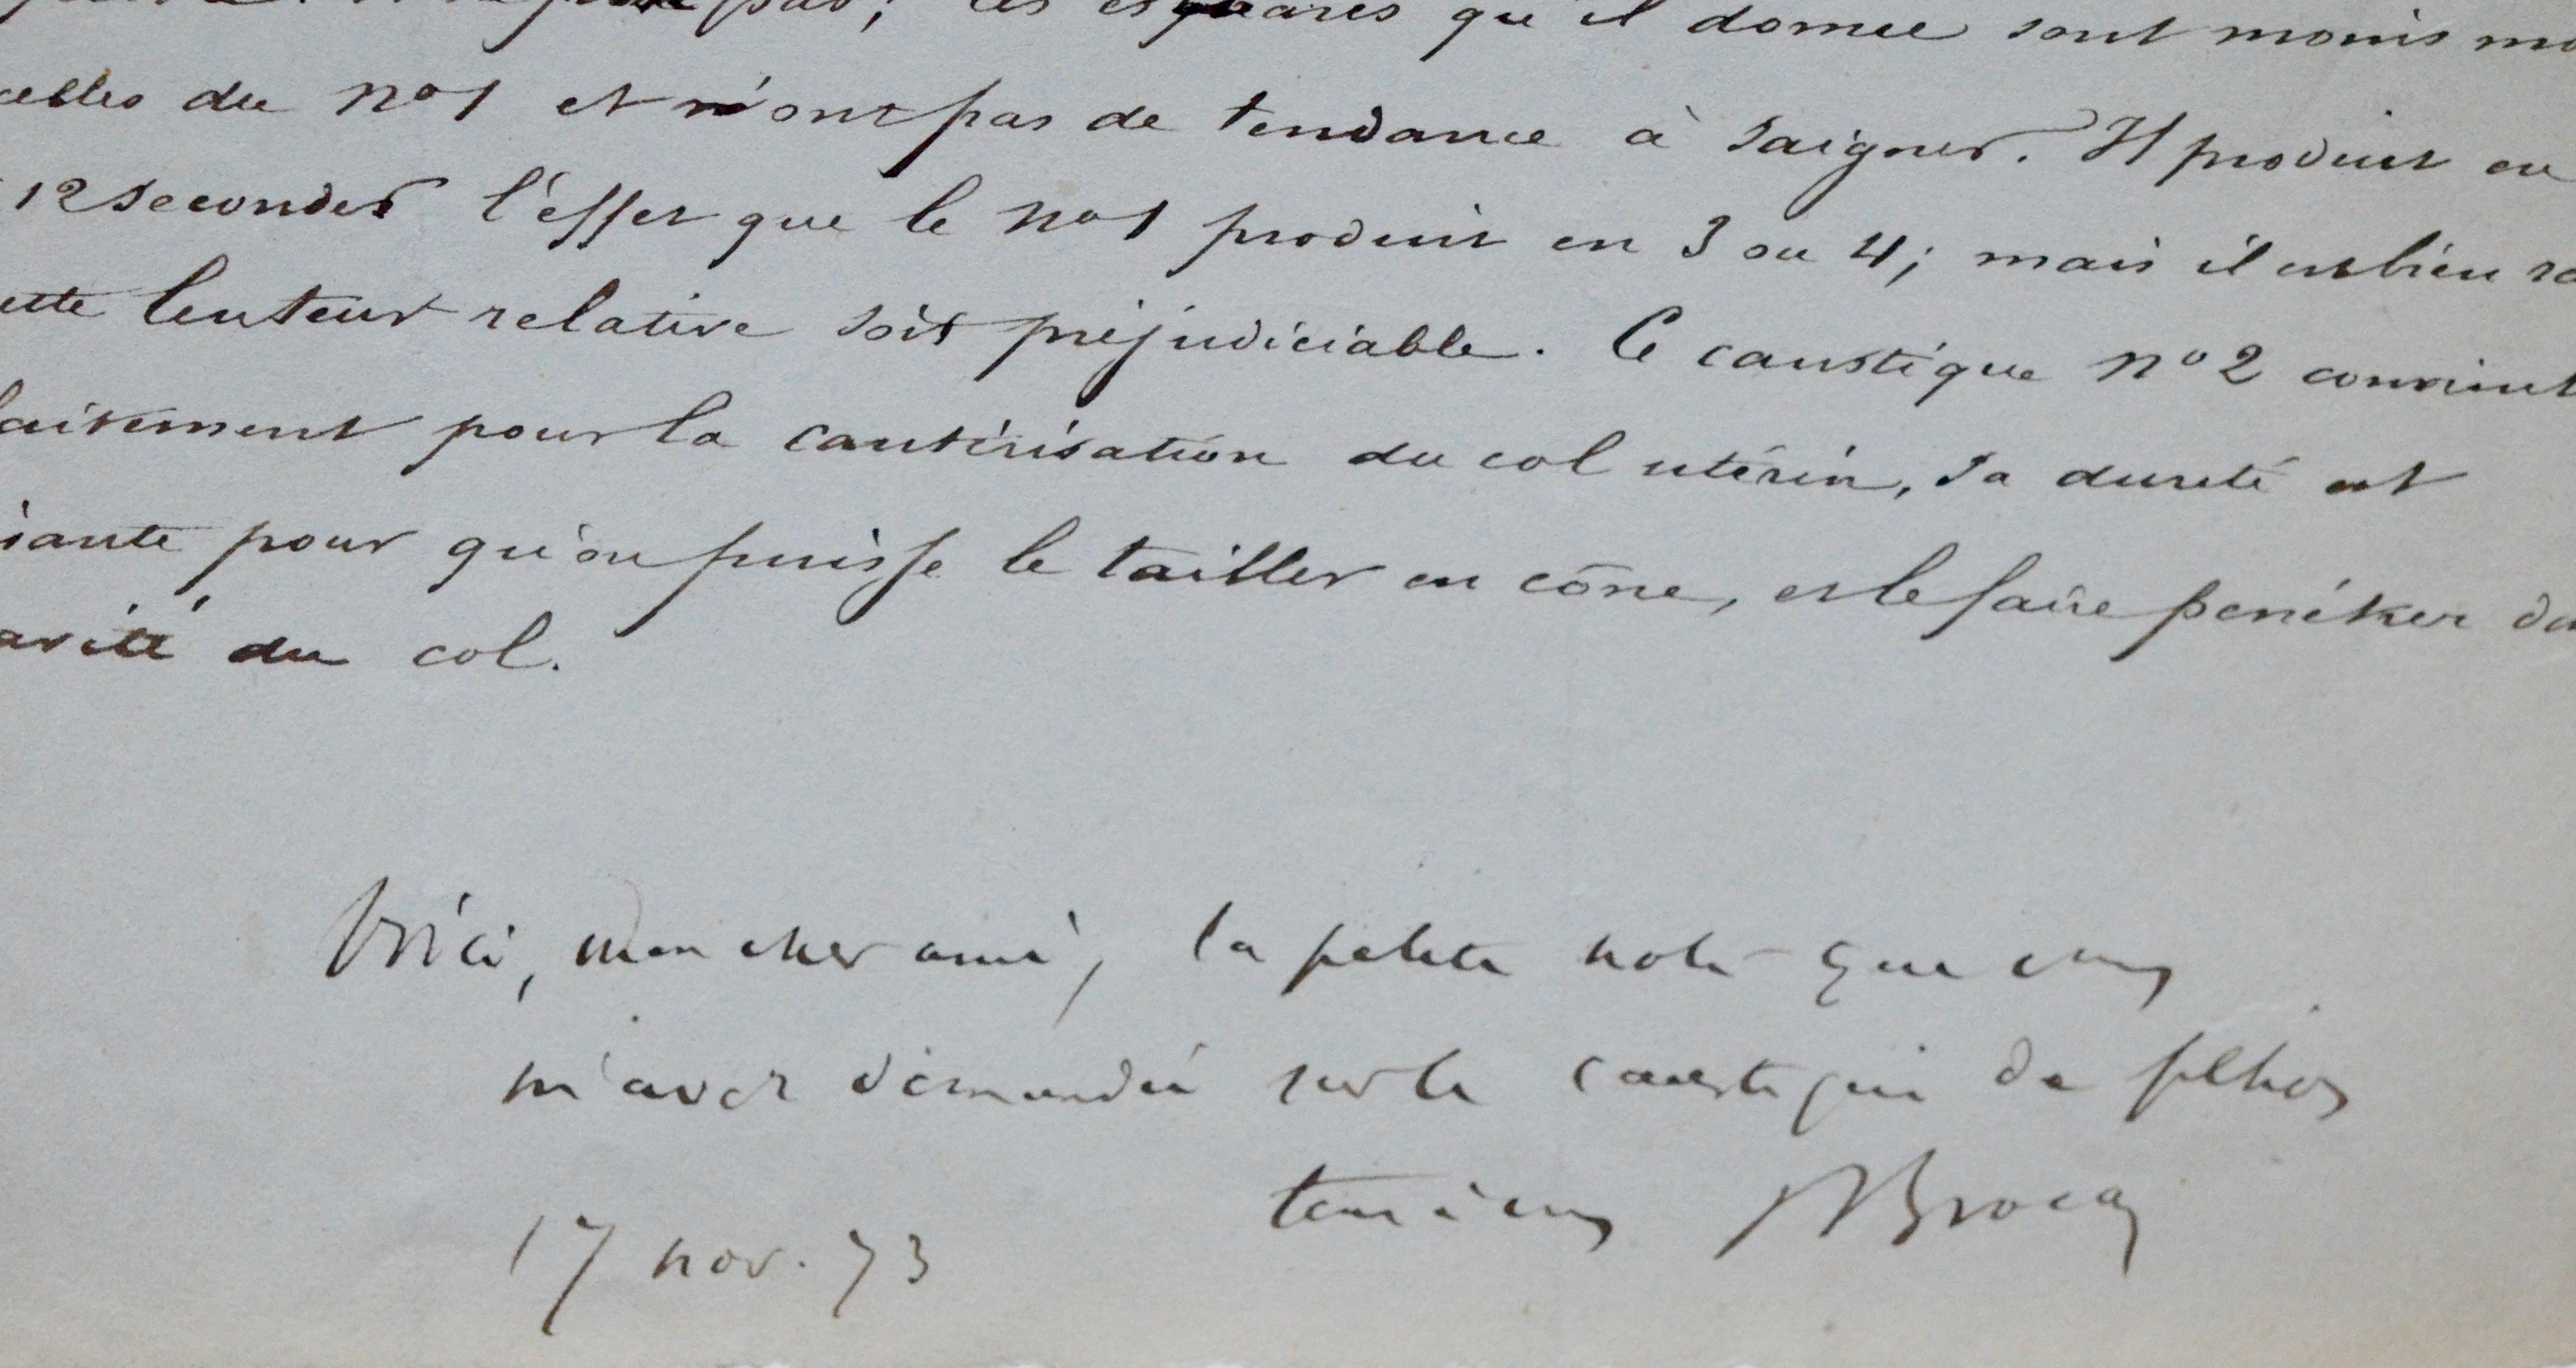 pas; les esquares qu'il donne sont moins mo
celles du nº1 et n'ont pas de tendance à saigner. Il produit en
12 secondes l'effet que le nº1 produit en 3 ou 4; mais il est bien ra
ette lenteur relative soit préjudiciable. Ce caustique nº2 convient
faitement pour la cautérisation du col utérin, sa dureté est
sante pour qu'on puisse le tailler en cône, et le faire pénétrer da
avité du col.
Voici, mon cher ami, la petite note que vous
m'avez demandée sur le caustique de filhos
tout à vous PBroca
17 nov. 73